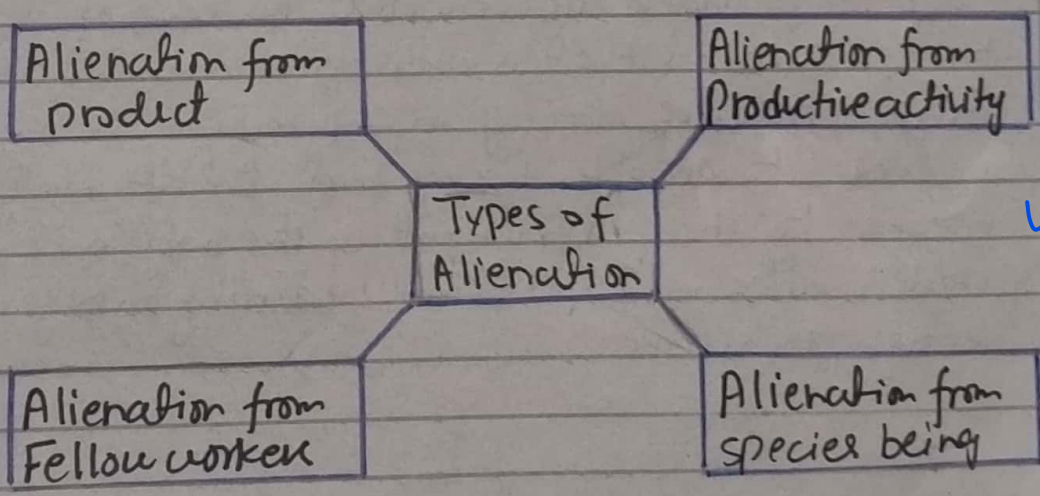 Alienation from
product
Alienation from
Productive activity
Types of
Alienation
Alienation from
Fellow worker
Alienation from
species being